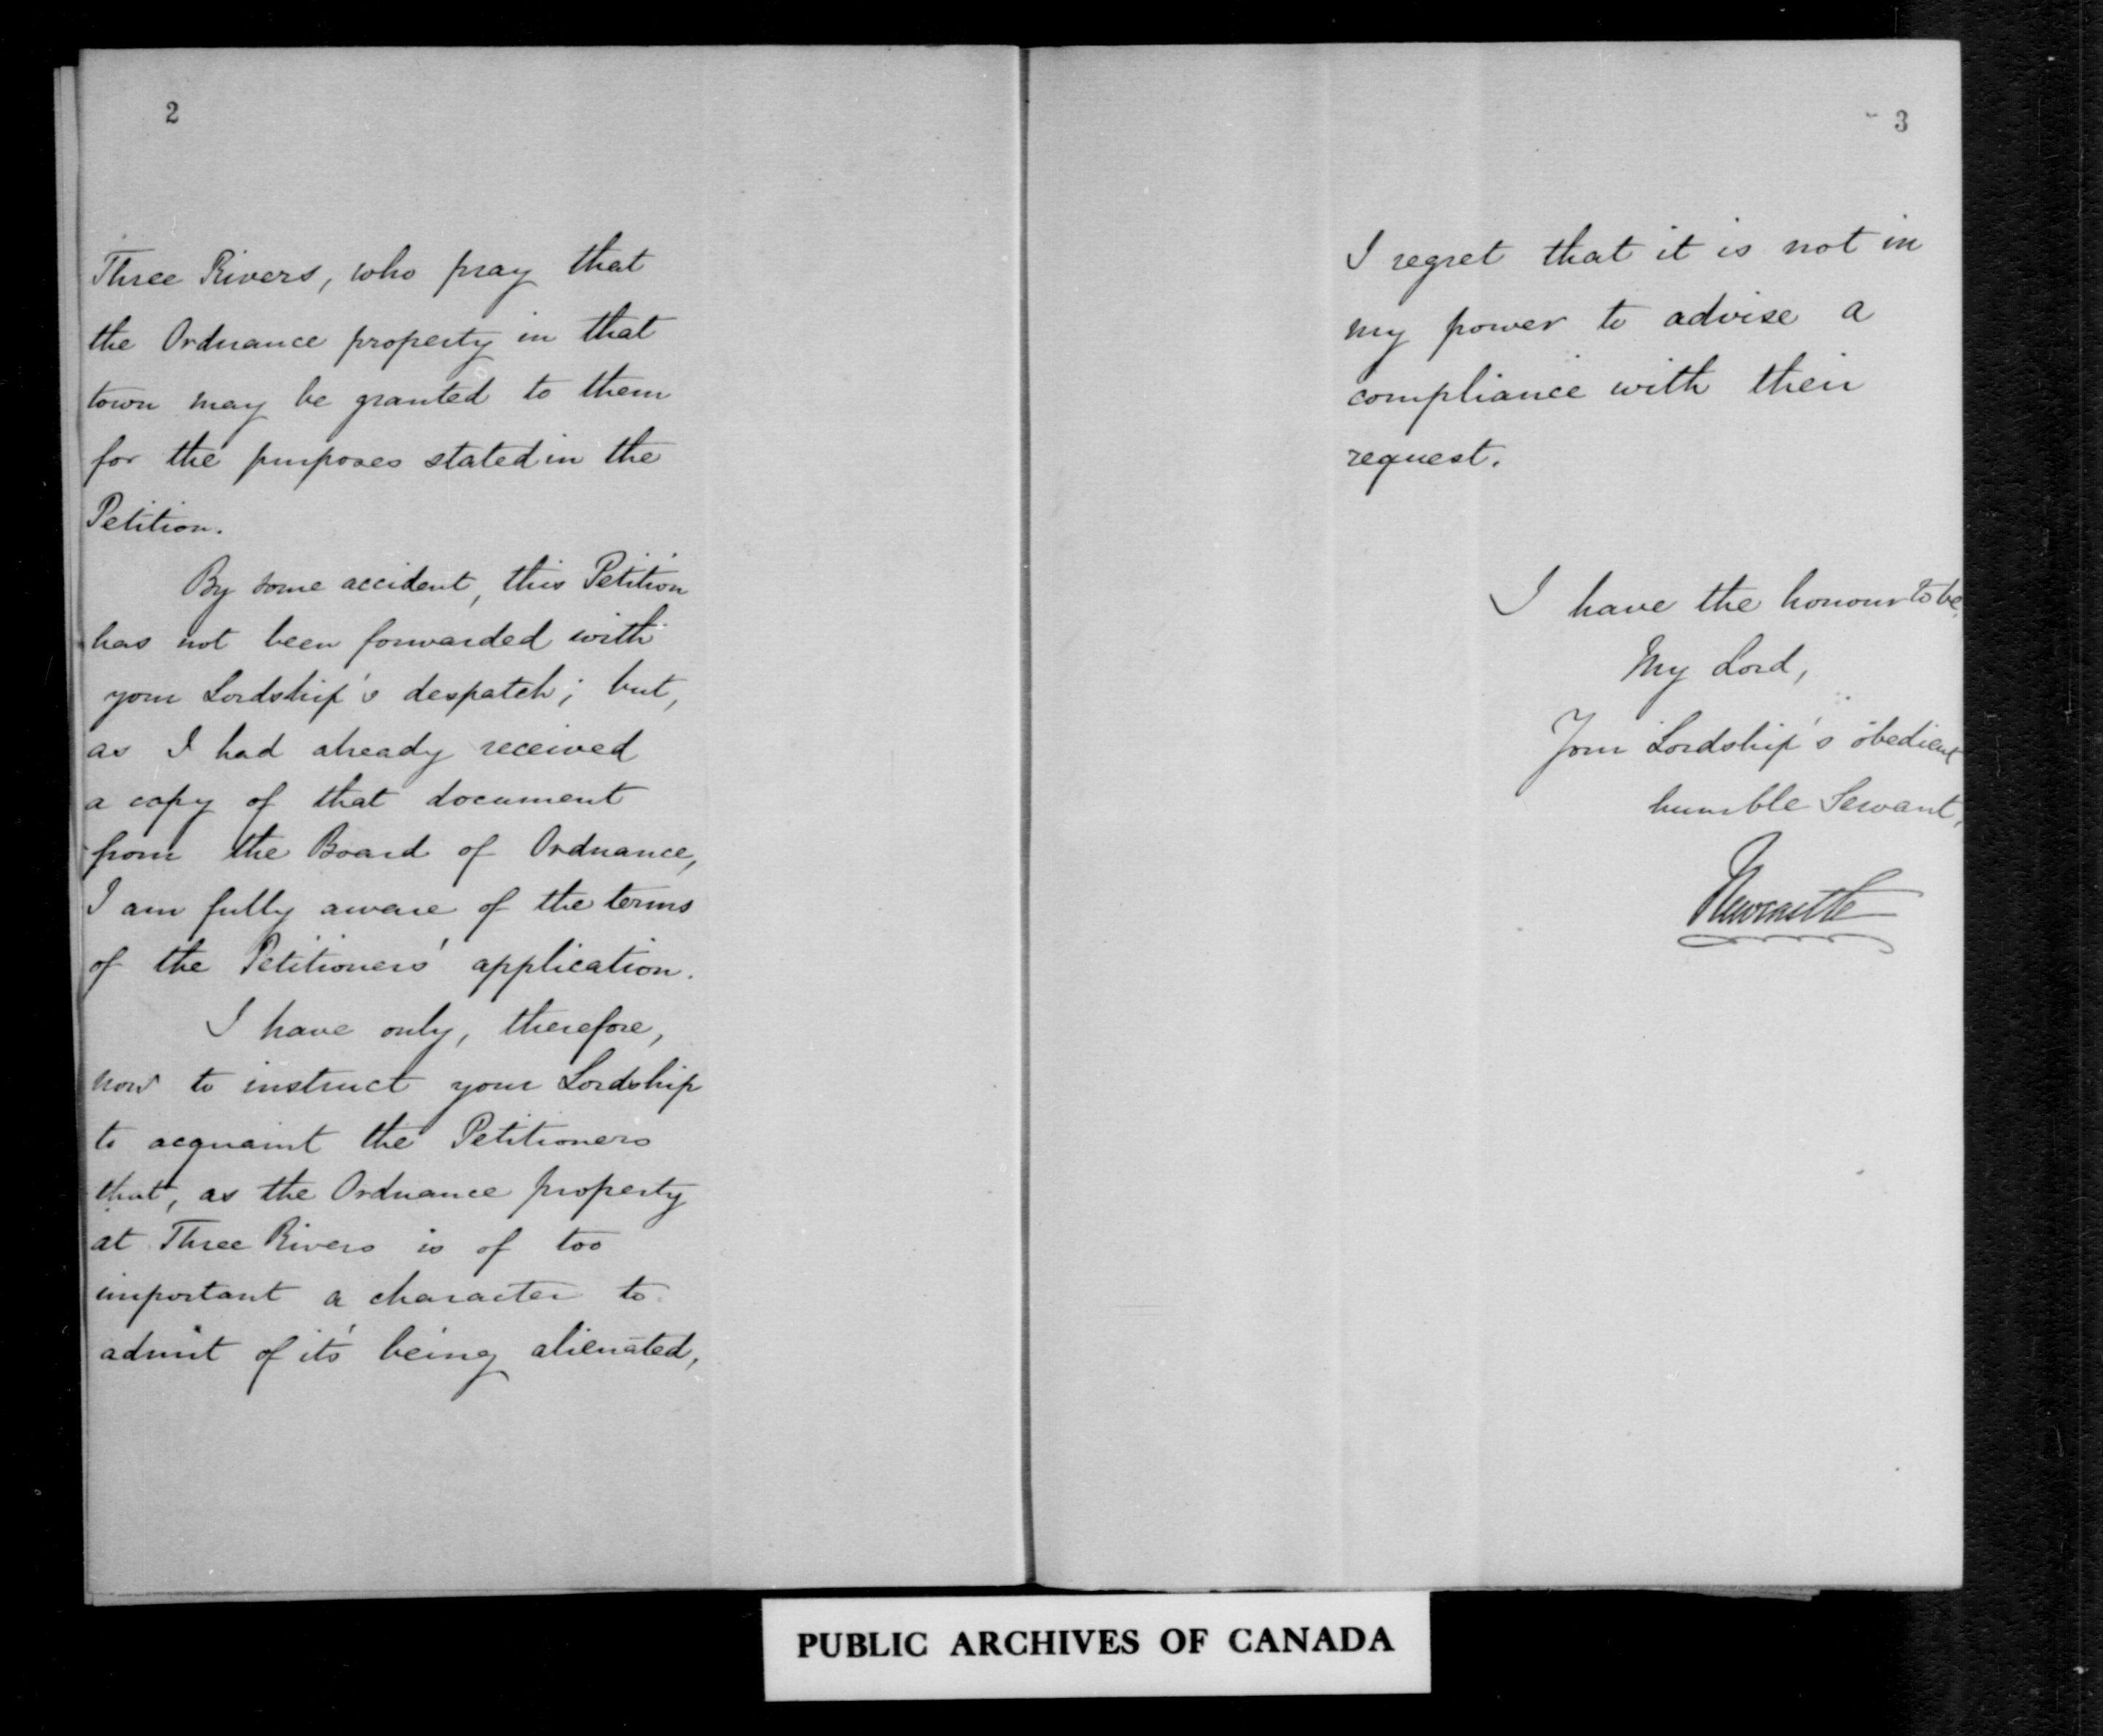 2
Three Rivers, who pray that
the Ordnance property in that
town may be granted to them
for the purposes stated in the
Petition.
By some accident, this Petition
has not been forwarded with
your Lordship's despatch; but,
as I had already received
a copy of that document
from the Board of Ordnance,
I am fully aware of the terms
of the Petitioners' application.
I have only, therefore,
now to instruct your Lordship
to acquaint the Petitioners
that, as the Ordnance property
at Three Rivers is of too
important a character to
admit of it's being alienated,
3
I regret that it is not in
my power to advise a
compliance with their
request.
I have the honour to be,
My Lord,
Your Lordship's obedient
humble Servant,
Newcastle
PUBLIC ARCHIVES OF CANADA